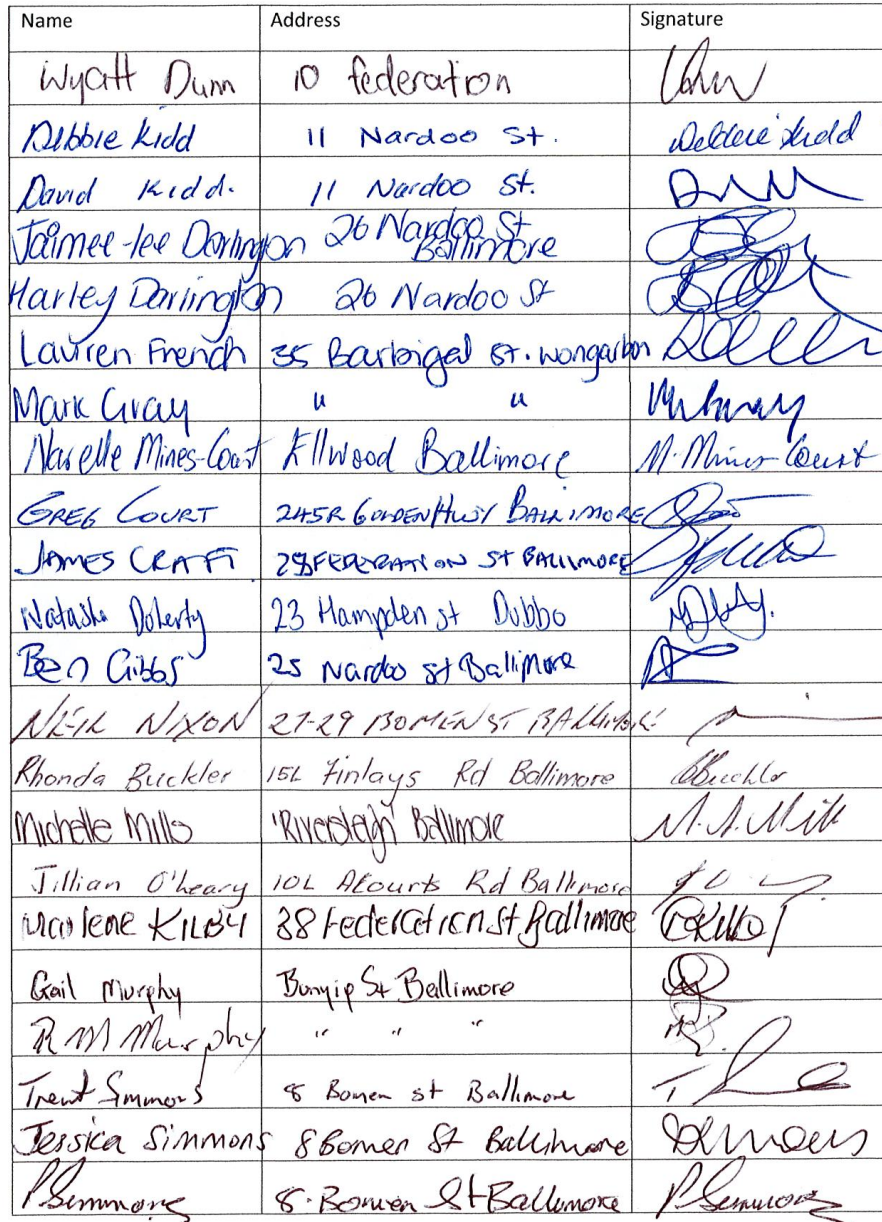 Name Address Signature
Wyatt Dunn 10 federation
Debbie Kidd 11 Nardoo St. Debbie Kidd
David Kidd. 11 Nardoo St.
Jaimee-lee Darlington 26 Nardoo St
Ballimore
Harley Darlington 26 Nardoo St
Lauren French 35 Barbigal St. Wongarbon
Mark Gray " "
Narelle Mines-Court Ellwood Ballimore N. Mines-Court
GREG COURT 245R GOLDEN HWY BALLIMORE
JAMES CRAFT FEDERATION ST BALLIMORE
Natasha Doherty 23 Hampden st Dubbo
Ben Gibbs 25 Nardoo st Ballimore
NEIL NIXON 27-29 BOMEN ST BALLIMORE
Rhonda Buckler 15L Finlays Rd Ballimore RBuckler
Michelle Mills 'Riversleigh' Ballimore M.A. Mills
Jillian O'Leary 10L Acourts Rd Ballimore
Marlene KILBY 38 Federation St Ballimore
Gail Murphy Bunyip St Ballimore
R M Murphy " " "
Trent Simmons 8 Bomen st Ballimore
Jessica Simmons 8 Bomen St Ballimore
P Simmons 8. Bomen St Ballimore P Simmons